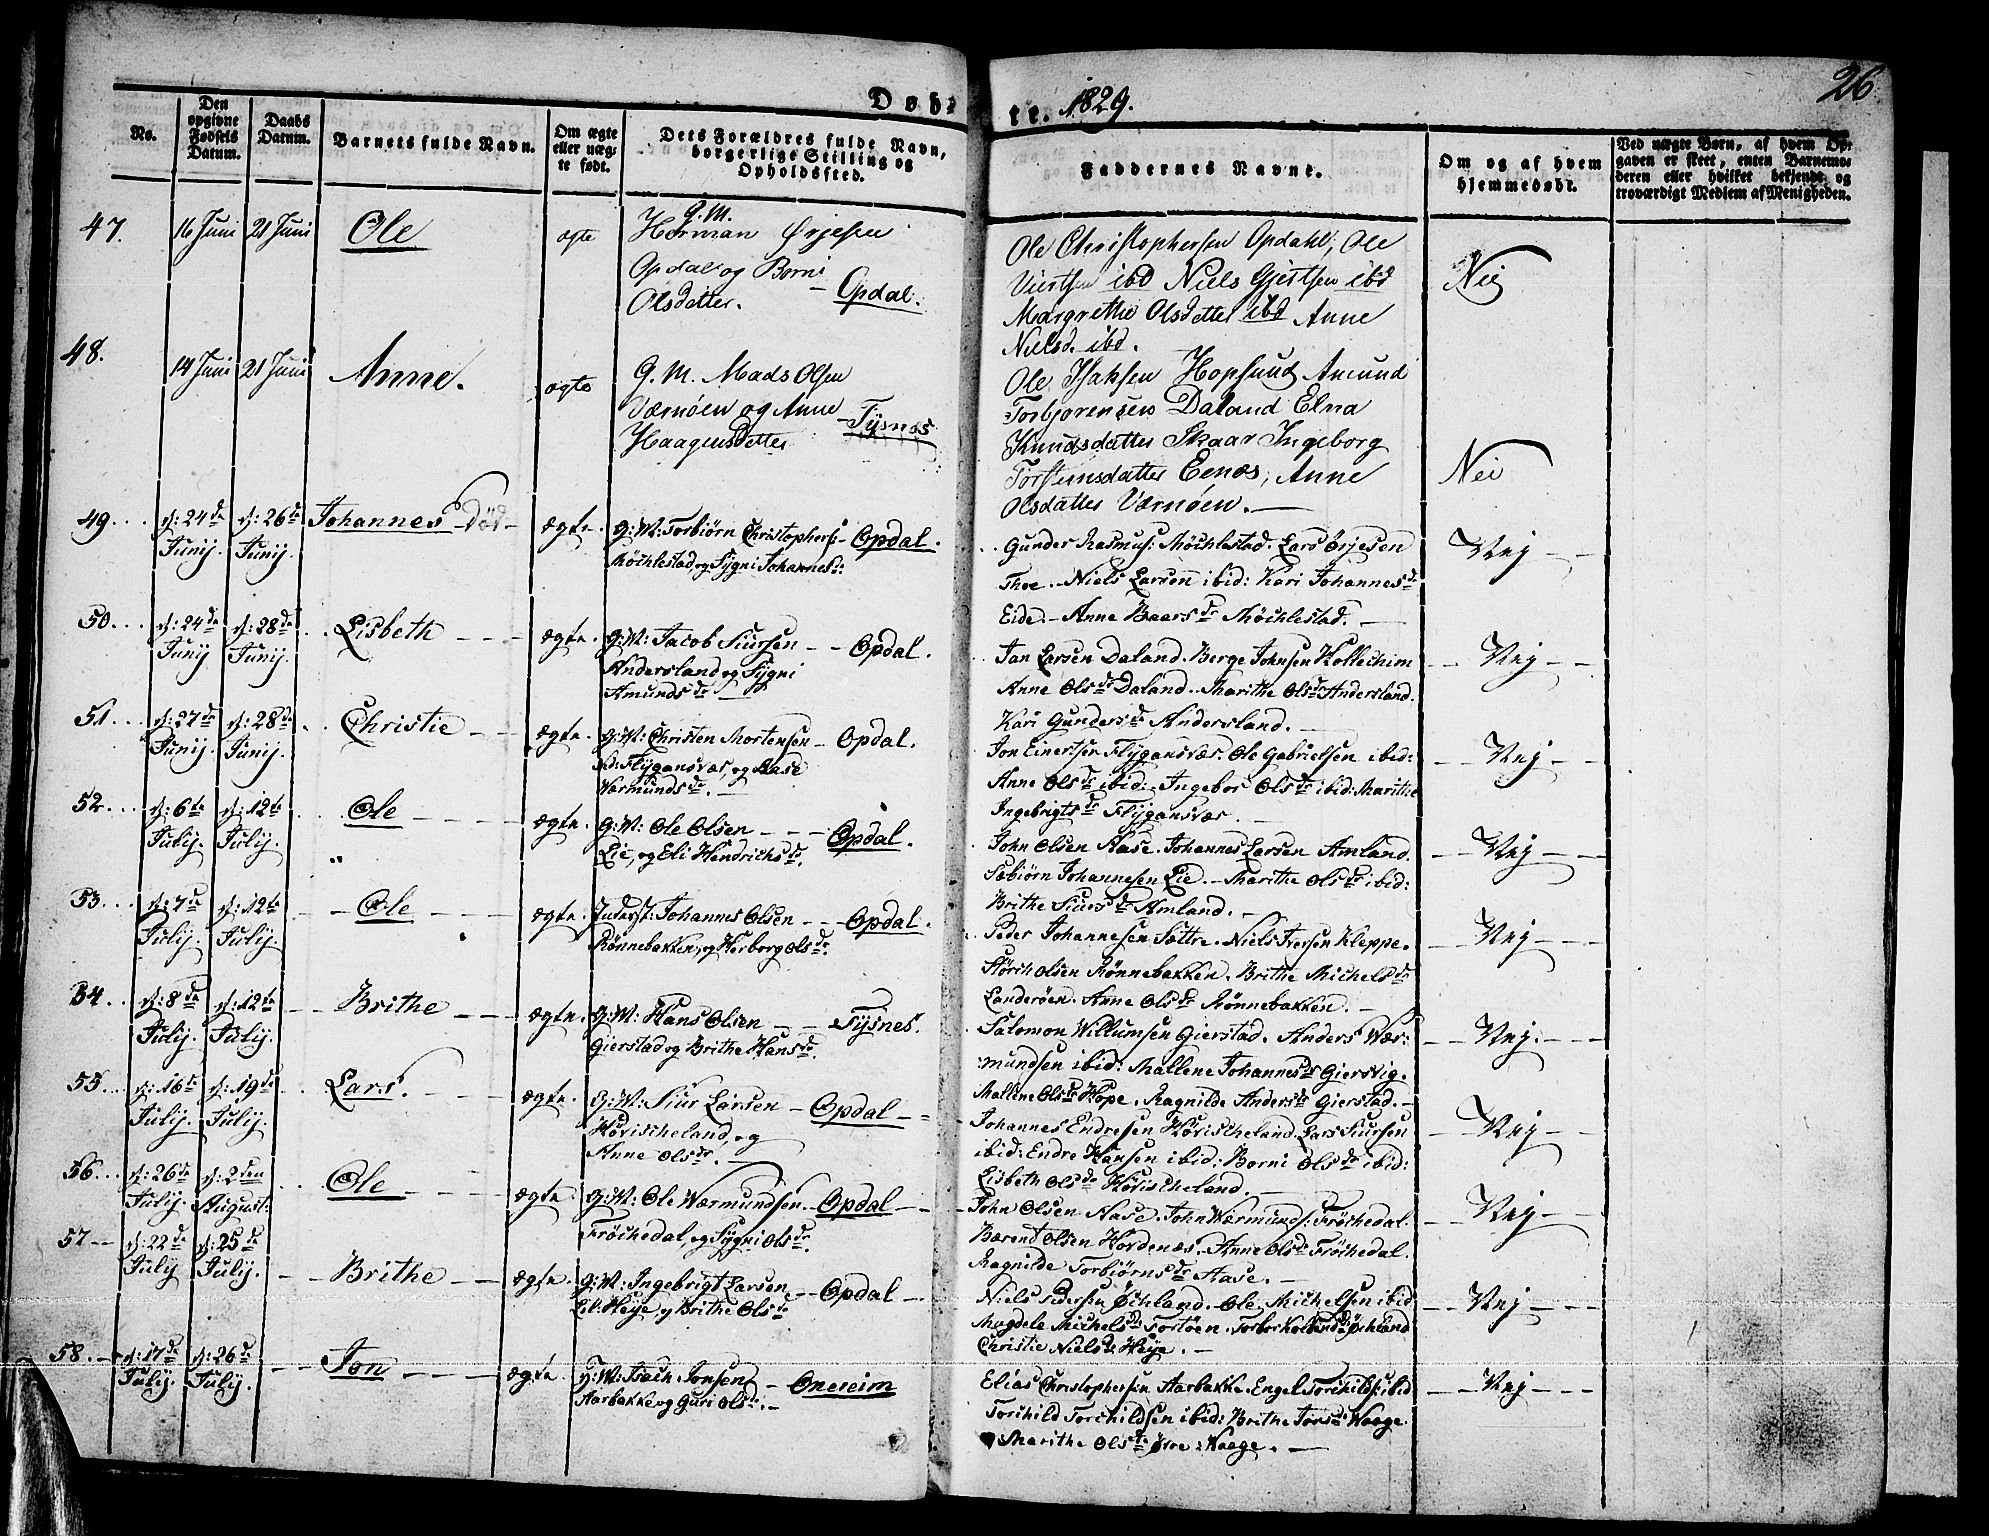 Døb-
te. 1829.
26
No.
Den opgivne Fødsels Datum.
Daabs Datum.
Barnets fulde Navn.
Om ægte eller uægte født.
Dets Forældres fulde Navn, borgerlige Stilling og Opholdssted.
Faddernes Navne.
Om og af hvem hjemmedøbt.
Ved uægte Børn, af hvem Opgaven er skeet, enten Barnemoderen eller hvilket bekjendt og troværdigt Medlem af Menigheden.
47. 16 Juni 21 Juni Ole ægte G. M.
Herman Ørjesen
Opdal og Borni - Opdal.
Olsdatter.
Ole Christophersen Opdahl, Ole
ibd Niels Gjertsen ibd
Margrethe Olsdatter ibd Anne
Nielsd. ibd.
Nei
48. 14 Juni 21 Juni Anne. ægte G. M. Mads Olsen
Værnøen og Anne - Tysnæs
Haagensdatter
Ole Isaksen Hopsund Amund
Torbjørensen Daland Elna
Knudsdatter Skaar Ingeborg
Torsteinsdatter Eenæs, Anne
Olsdatter Værnøen.
Nei
49. d: 24de Junij. d: 26de Junij. Johannes Død ægte. G: M: Torbiørn Christophers: - Opdal.
Møchlestad og Sygni Johannesdr:
Gunder Rasmus: Møchlestad. Lars Ørjesen
Thoe. Niels Larsen ibid: Kari Johannesdr
Eide. - Anne Baarsdr Møchlestad.
Nej
50. d: 24de Junij d: 28de Junij. Lisbeth ægte. G: M: Jacob Siursen - - Opdal.
Andersland og Sygni
Amundsdr
Jan Larsen Daland. Berge Johnsen Kollechim
Anne Olsdr Daland. Marithe Olsdr Andersland.
Kari Gundersdr Andersland.
Nej
51. d: 27de Junij. d: 28de Junij. Christie ægte. G: M: Christen Mortensen - Opdal.
Nd: Flygansvær, og Aase
Værmundsdr.
Jon Einertsen Flygansvær: Ole Gabrielsen ibid:
Anne Olsdr ibid: Ingebor Olsdr ibid: Marithe
Ingebrigtsdr Flygansvær.
Nej
52. d: 6te Julij. d: 12te Julij. Ole ægte. G: M: Ole Olsen - - - Opdal.
Lie, og Eli Hendrichsdr.
John Olsen Aase. Johannes Larsen Amland.
Sæbiørn Johannesen Lie. - Marithe Olsdr ibid:
Brithe Siursdr Amland.
Nej
53. d: 7de Julij. d: 12te Julij. Ole ægte. Inderst: Johannes Olsen - - - Opdal.
Rønnebakken, og Herborg Olsdr.
Peder Johannesen Sættre. Niels Iversen Kleppe.
Størch Olsen Rønnebakken. Brithe Michelsdr
Landerøen. Anne Olsdr Rønnebakken.
Nej
54. d: 8de Julij. d: 12te Julij. Brithe ægte. G: M: Hans Olsen - - Tysnes.
Gierstad og Brithe Hansdr.
Salomon Willumsen Gierstad. Anders Vær:
mundsen ibid: Mallene Johannesdr Giersvig.
Mallene Olsdr Hope. Ragnilde Andersdr Gierstad.
Nej.
55. d: 16de Julij. d: 19de Julij. Lars. ægte. G: M: Siur Larsen - Opdal
Høvischeland, og
Anne Olsdr.
Johannes Endresen Høvischeland. Lars Siursen
ibid: Endre Hansen ibid: Borni Olsdr ibid:
Lisbeth Olsdr Høvischeland.
Nej
56. d: 26de Julij. d: 2den August: Ole ægte. G: M: Ole Værmundsen - Opdal
Frøchedal, og Sygni Olsdr.
John Olsen Aase. John Værmunds: Frøchedal.
Bærent Olsen Hordenæs. Anne Olsdr Frøchedal.
Ragnilde Torbiørnsdr Aase.
Nej
57. d: 22de Julij d: 25de Julij. Brithe ægte. G: M: Ingebrigt Larsen - - Opdal
Lil: Høye og Brithe Olsdr
Niels Pedersen Øchland. Ole Michelsen ibid
Magdele Michelsdr Tortøen. Øchland
Christie Nielsdr Høye.
Nej
58. d: 17de Julij. d: 26de Julij. Jon ægte. G: M: Isach Jonsen - Onereim
Aarbakke og Guri Olsdr.
Elias Christophersen Aarbakke. Engel Torchilds: ibid
Torchild Torchildsen ibid: Brithe Jonsdr Waage.
Marithe Olsdr Øvre: Waage.
Nej